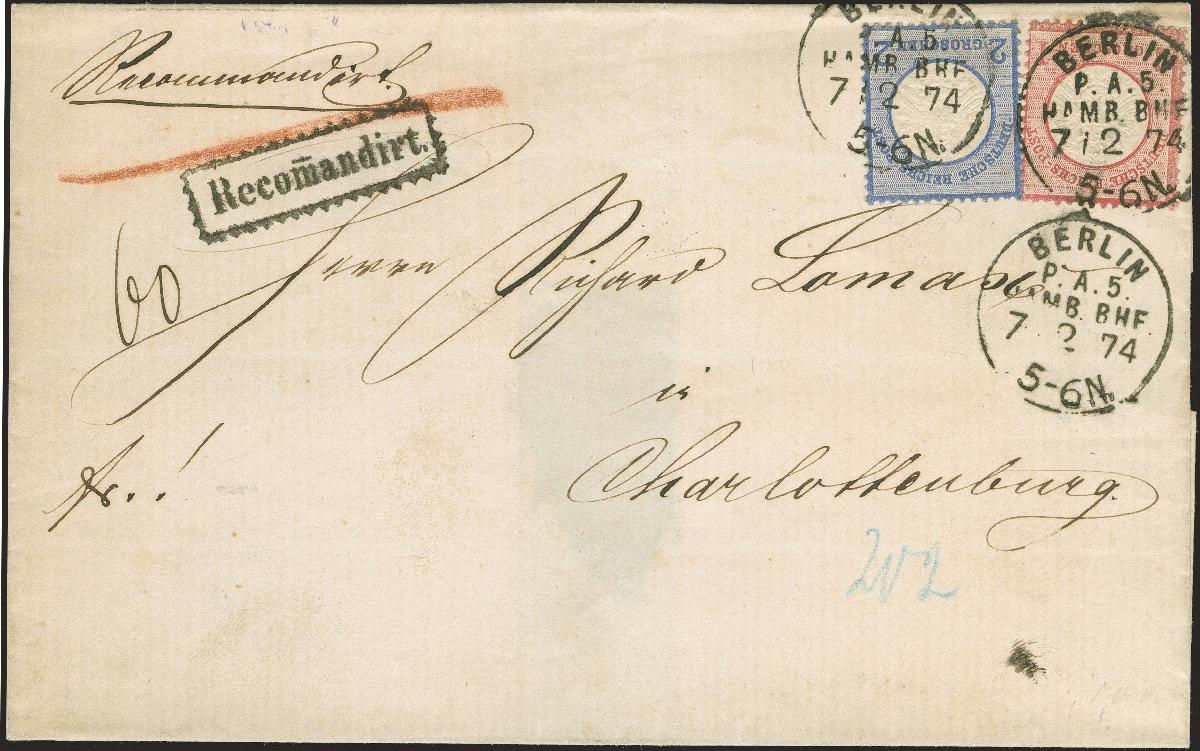 Recommandirt.
Recom̄andirt.
BERLIN
P. A. 5.
HAMB. BHF.
7 2 74
5-6N.
2 GROSCHEN 2
DEUTSCHE REICHS-POST
BERLIN
P. A. 5.
HAMB. BHF.
7 12 74
5-6N.
DEUTSCHE REICHS-POST
BERLIN
P. A. 5.
HAMB. BHF.
7 2 74
5-6N.
60
Herrn Richard Lomax
in
fr.!
Charlottenburg.
202